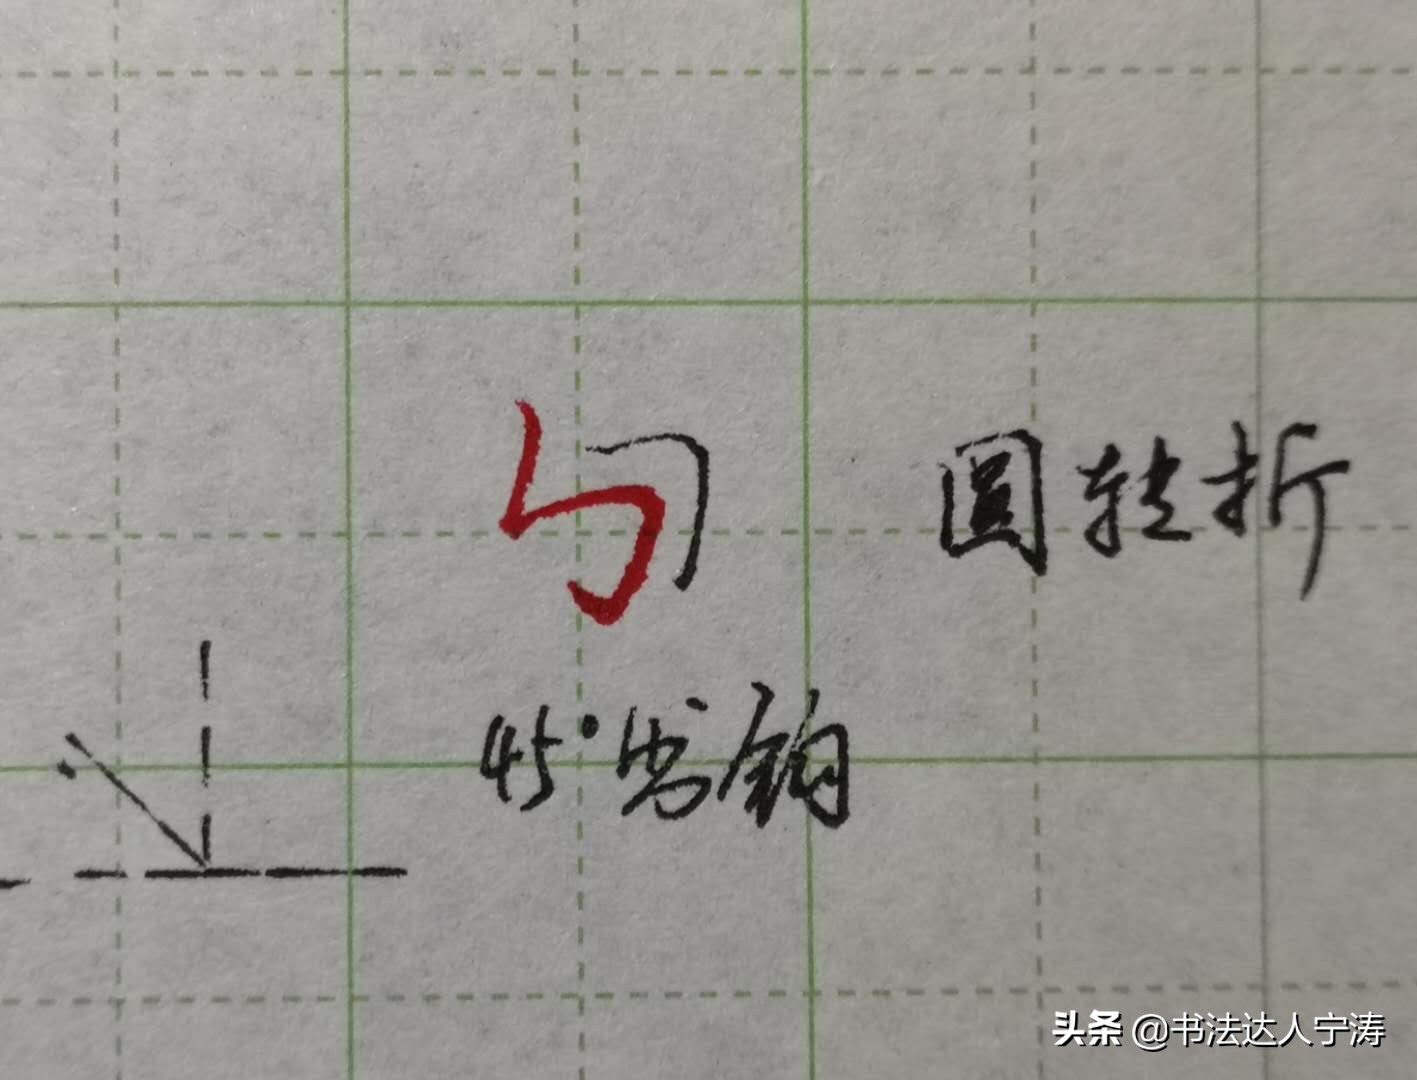 圆转折
45°出钩
头条 @书法达人宁涛